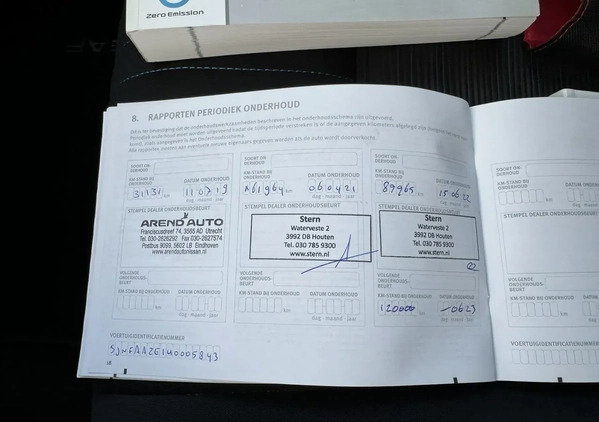 Zero Emission
8. RAPPORTEN PERIODIEK ONDERHOUD
Dit is ter bevestiging dat de onderhoudswerkzaamheden beschreven in het onderhoudsschema zijn uitgevoerd.
Alle rapporten moeten aan eventuele nieuwe eigenaars gegeven worden als de auto wordt doorverkocht.
SOORT ON-
DERHOUD
KM-STAND BIJ ONDERHOUD
DATUM ONDERHOUD
31131 km
11 07 19
dag - maand - jaar
STEMPEL DEALER ONDERHOUDSBEURT
AREND AUTO
Franciscusdreef 74, 3565 AD Utrecht
Tel. 030-2626292 Fax 030-2627574
Postbus 9099, 5602 LB Eindhoven
www.arendautomissan.nl
VOLGENDE
ONDERHOUDS-
BEURT
KM-STAND BIJ ONDERHOUD
DATUM ONDERHOUD
km
dag - maand - jaar
SOORT ON-
DERHOUD
KM-STAND BIJ ONDERHOUD
DATUM ONDERHOUD
61964 km
060421
dag - maand - jaar
STEMPEL DEALER ONDERHOUDSBEURT
Stern
Waterveste 2
3992 DB Houten
Tel. 030 785 9300
www.stern.nl
VOLGENDE
ONDERHOUDS-
BEURT
KM-STAND BIJ ONDERHOUD
DATUM ONDERHOUD
km
dag - maand - jaar
SOORT ON-
DERHOUD
KM-STAND BIJ ONDERHOUD
DATUM ONDERHOUD
89965 km
15 06 22
dag - maand - jaar
STEMPEL DEALER ONDERHOUDSBEURT
Stern
Waterveste 2
3992 DB Houten
Tel. 030 785 9300
www.stern.nl
VOLGENDE
ONDERHOUDS-
BEURT
KM-STAND BIJ ONDERHOUD
DATUM ONDERHOUD
120000 km
-0623
dag - maand - jaar
VOERTUIGIDENTIFICATIENUMMER
SJNFAAZE1U0005843
18
SOORT ON-
DERHOUD
KM-STAND BIJ ONDERHOUD
STEMPEL DEALER ON
VOLGENDE
ONDERHOUDS-
BEURT
KM-STAND BIJ ONDERHOUD
VOERTUIGIDENTIFICATIENUMMER